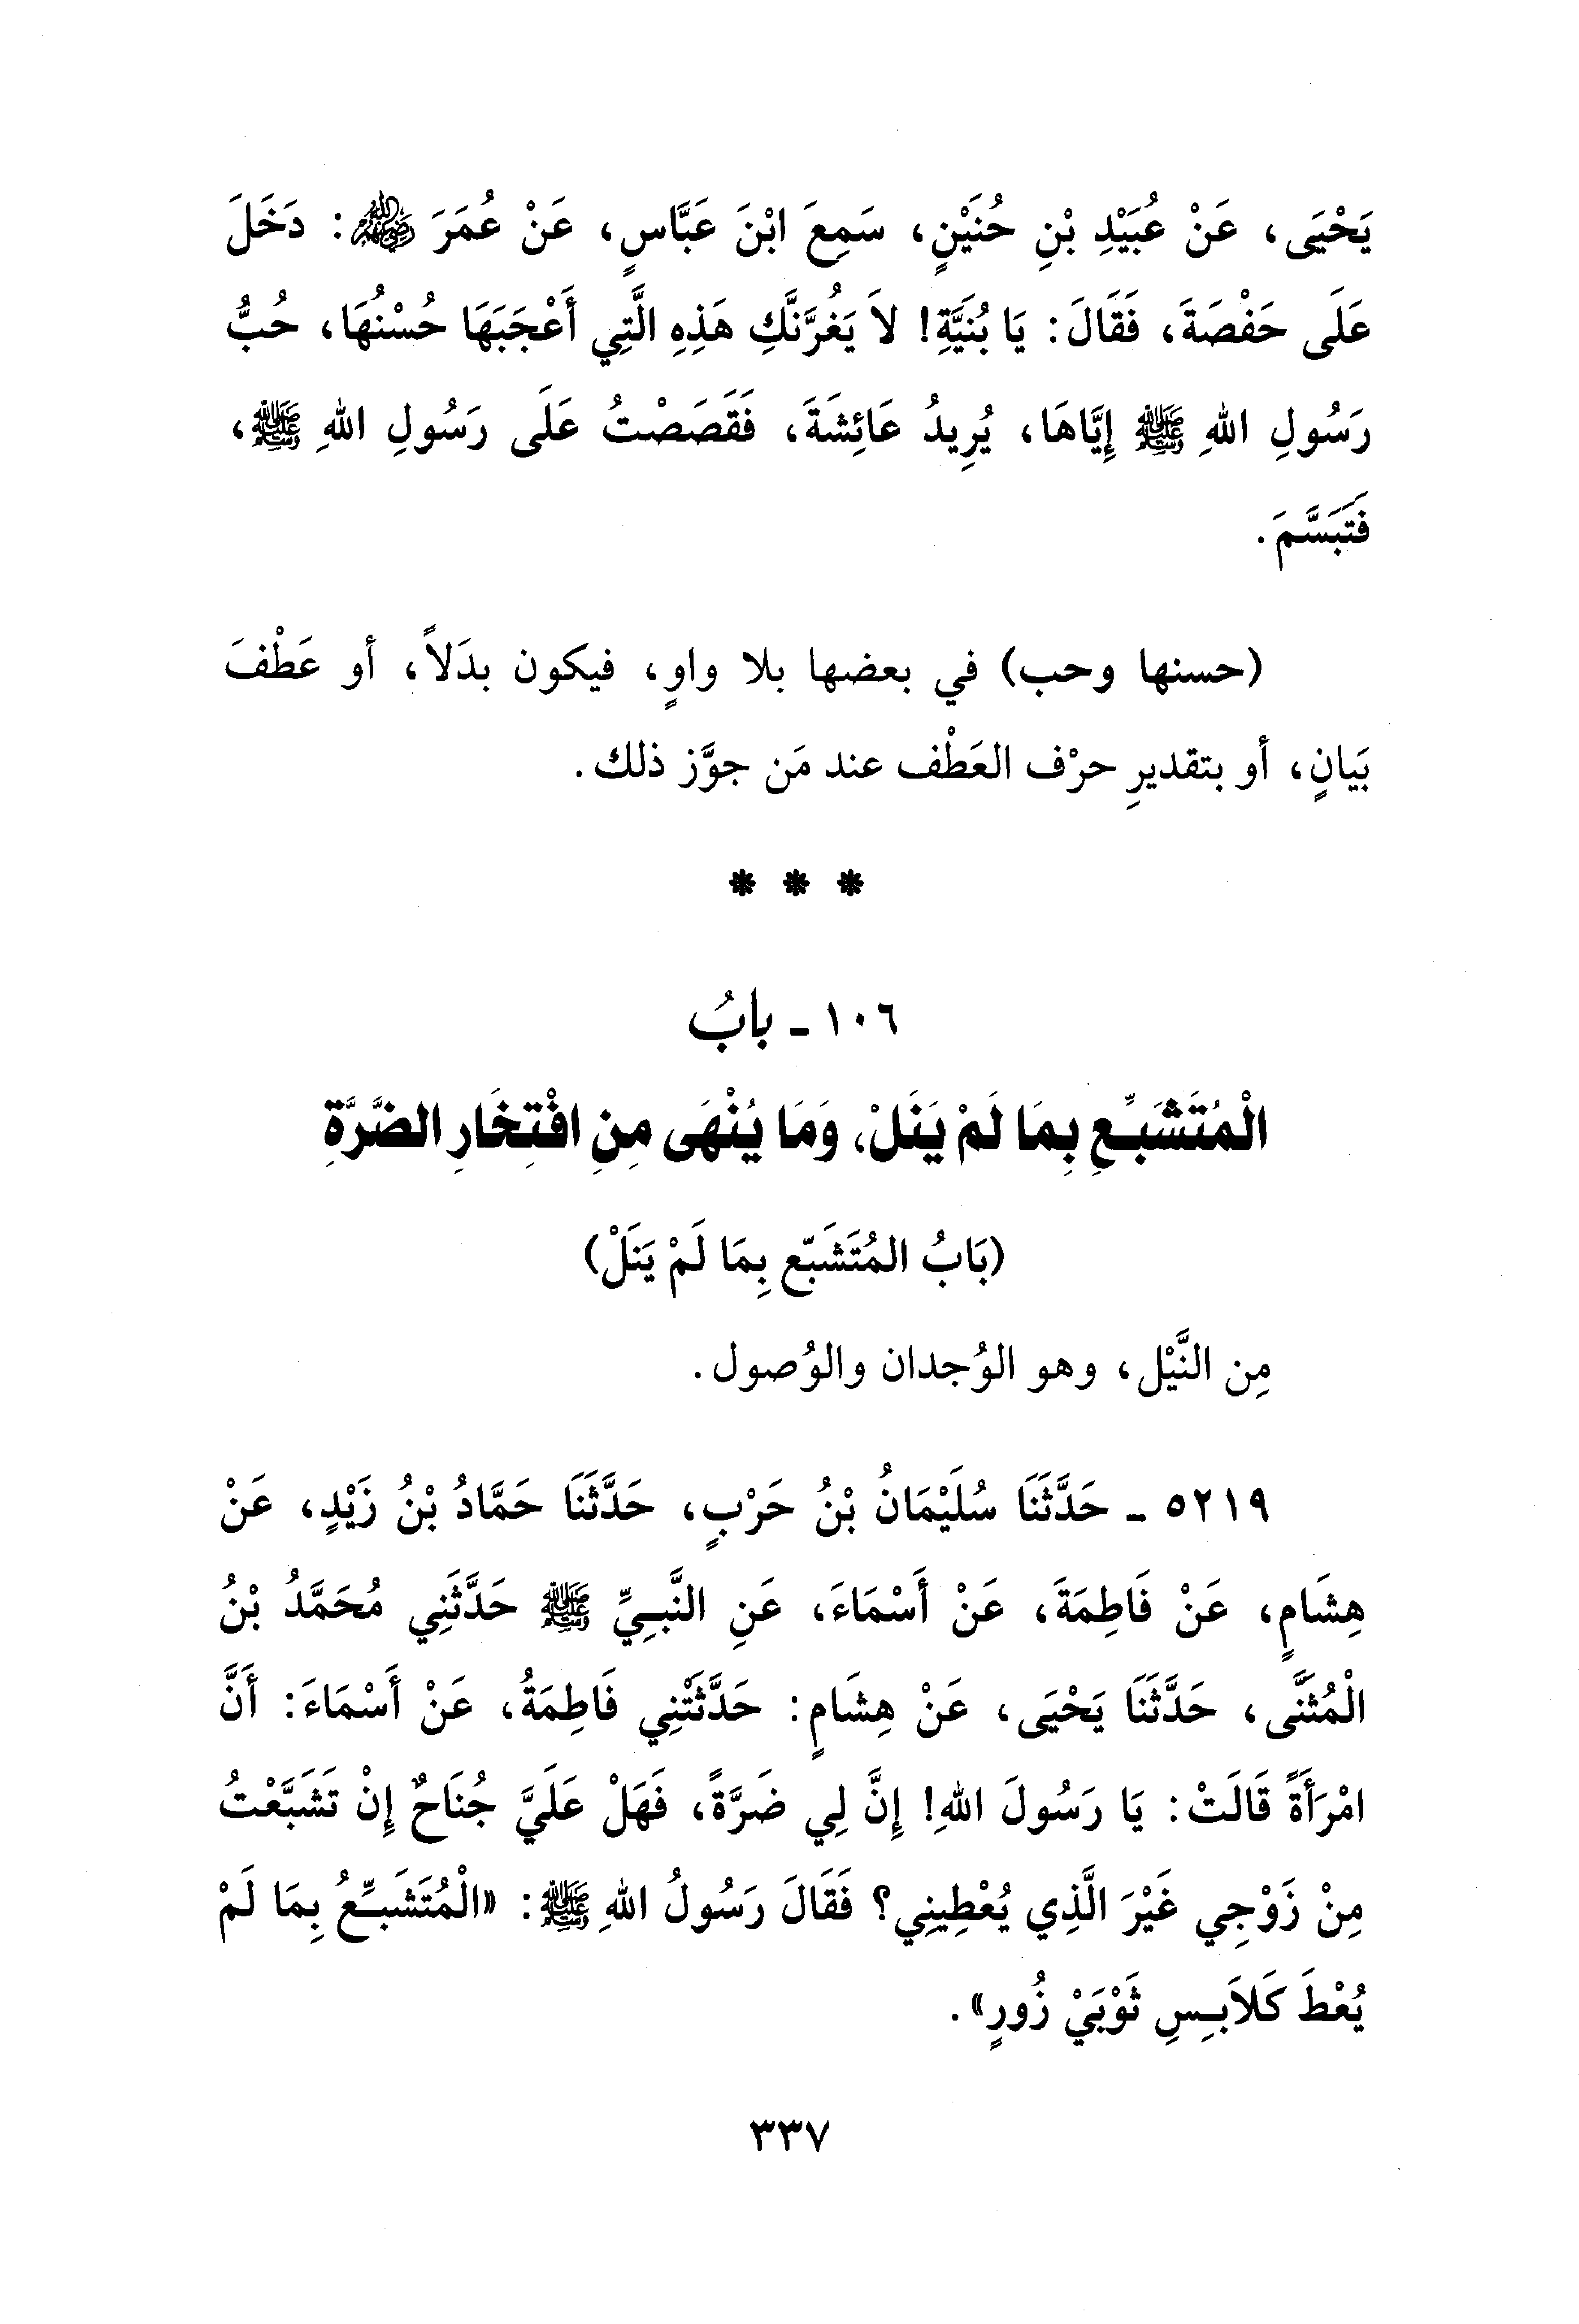 يَحْيَى، عَنْ عُبَيْدِ بْنِ حُنَيْنٍ، سَمِعَ ابْنَ عَبَّاسٍ، عَنْ عُمَرَ رضي الله عنهم: دَخَلَ
عَلَى حَفْصَةَ، فَقَالَ: يَا بُنَيَّةِ! لاَ يَغُرَّنَّكِ هَذِهِ الَّتِي أَعْجَبَهَا حُسْنُهَا، حُبُّ
رَسُولِ اللهِ ﷺ إِيَّاهَا، يُرِيدُ عَائِشَةَ، فَقَصَصْتُ عَلَى رَسُولِ اللهِ ﷺ،
فَتَبَسَّمَ.
(حسنها وحب) في بعضها بلا واوٍ، فيكون بدَلاً، أو عَطْفَ
بَيانٍ، أو بتقديرِ حرْف العَطْف عند مَن جوَّز ذلك.
* * *
١٠٦ - بابُ
الْمُتَشَبِّعِ بِمَا لَمْ يَنَلْ، وَمَا يُنْهَى مِنِ افْتِخَارِ الضَّرَّةِ
(بَابُ المُتَشَبّع بِمَا لَمْ يَنَلْ)
مِن النَّيْل، وهو الوُجدان والوُصول.
٥٢١٩ - حَدَّثَنَا سُلَيْمَانُ بْنُ حَرْبٍ، حَدَّثَنَا حَمَّادُ بْنُ زَيْدٍ، عَنْ
هِشَامٍ، عَنْ فَاطِمَةَ، عَنْ أَسْمَاءَ، عَنِ النَّبِيِّ ﷺ حَدَّثَنِي مُحَمَّدُ بْنُ
الْمُثَنَّى، حَدَّثَنَا يَحْيَى، عَنْ هِشَامٍ: حَدَّثَتْنِي فَاطِمَةُ، عَنْ أَسْمَاءَ: أَنَّ
امْرَأَةً قَالَتْ: يَا رَسُولَ اللهِ! إِنَّ لِي ضَرَّةً، فَهَلْ عَلَيَّ جُنَاحٌ إِنْ تَشَبَّعْتُ
مِنْ زَوْجِي غَيْرَ الَّذِي يُعْطِينِي؟ فَقَالَ رَسُولُ اللهِ ﷺ: «الْمُتَشَبِّعُ بِمَا لَمْ
يُعْطَ كَلاَبِسِ ثَوْبَيْ زُورٍ».
٣٣٧